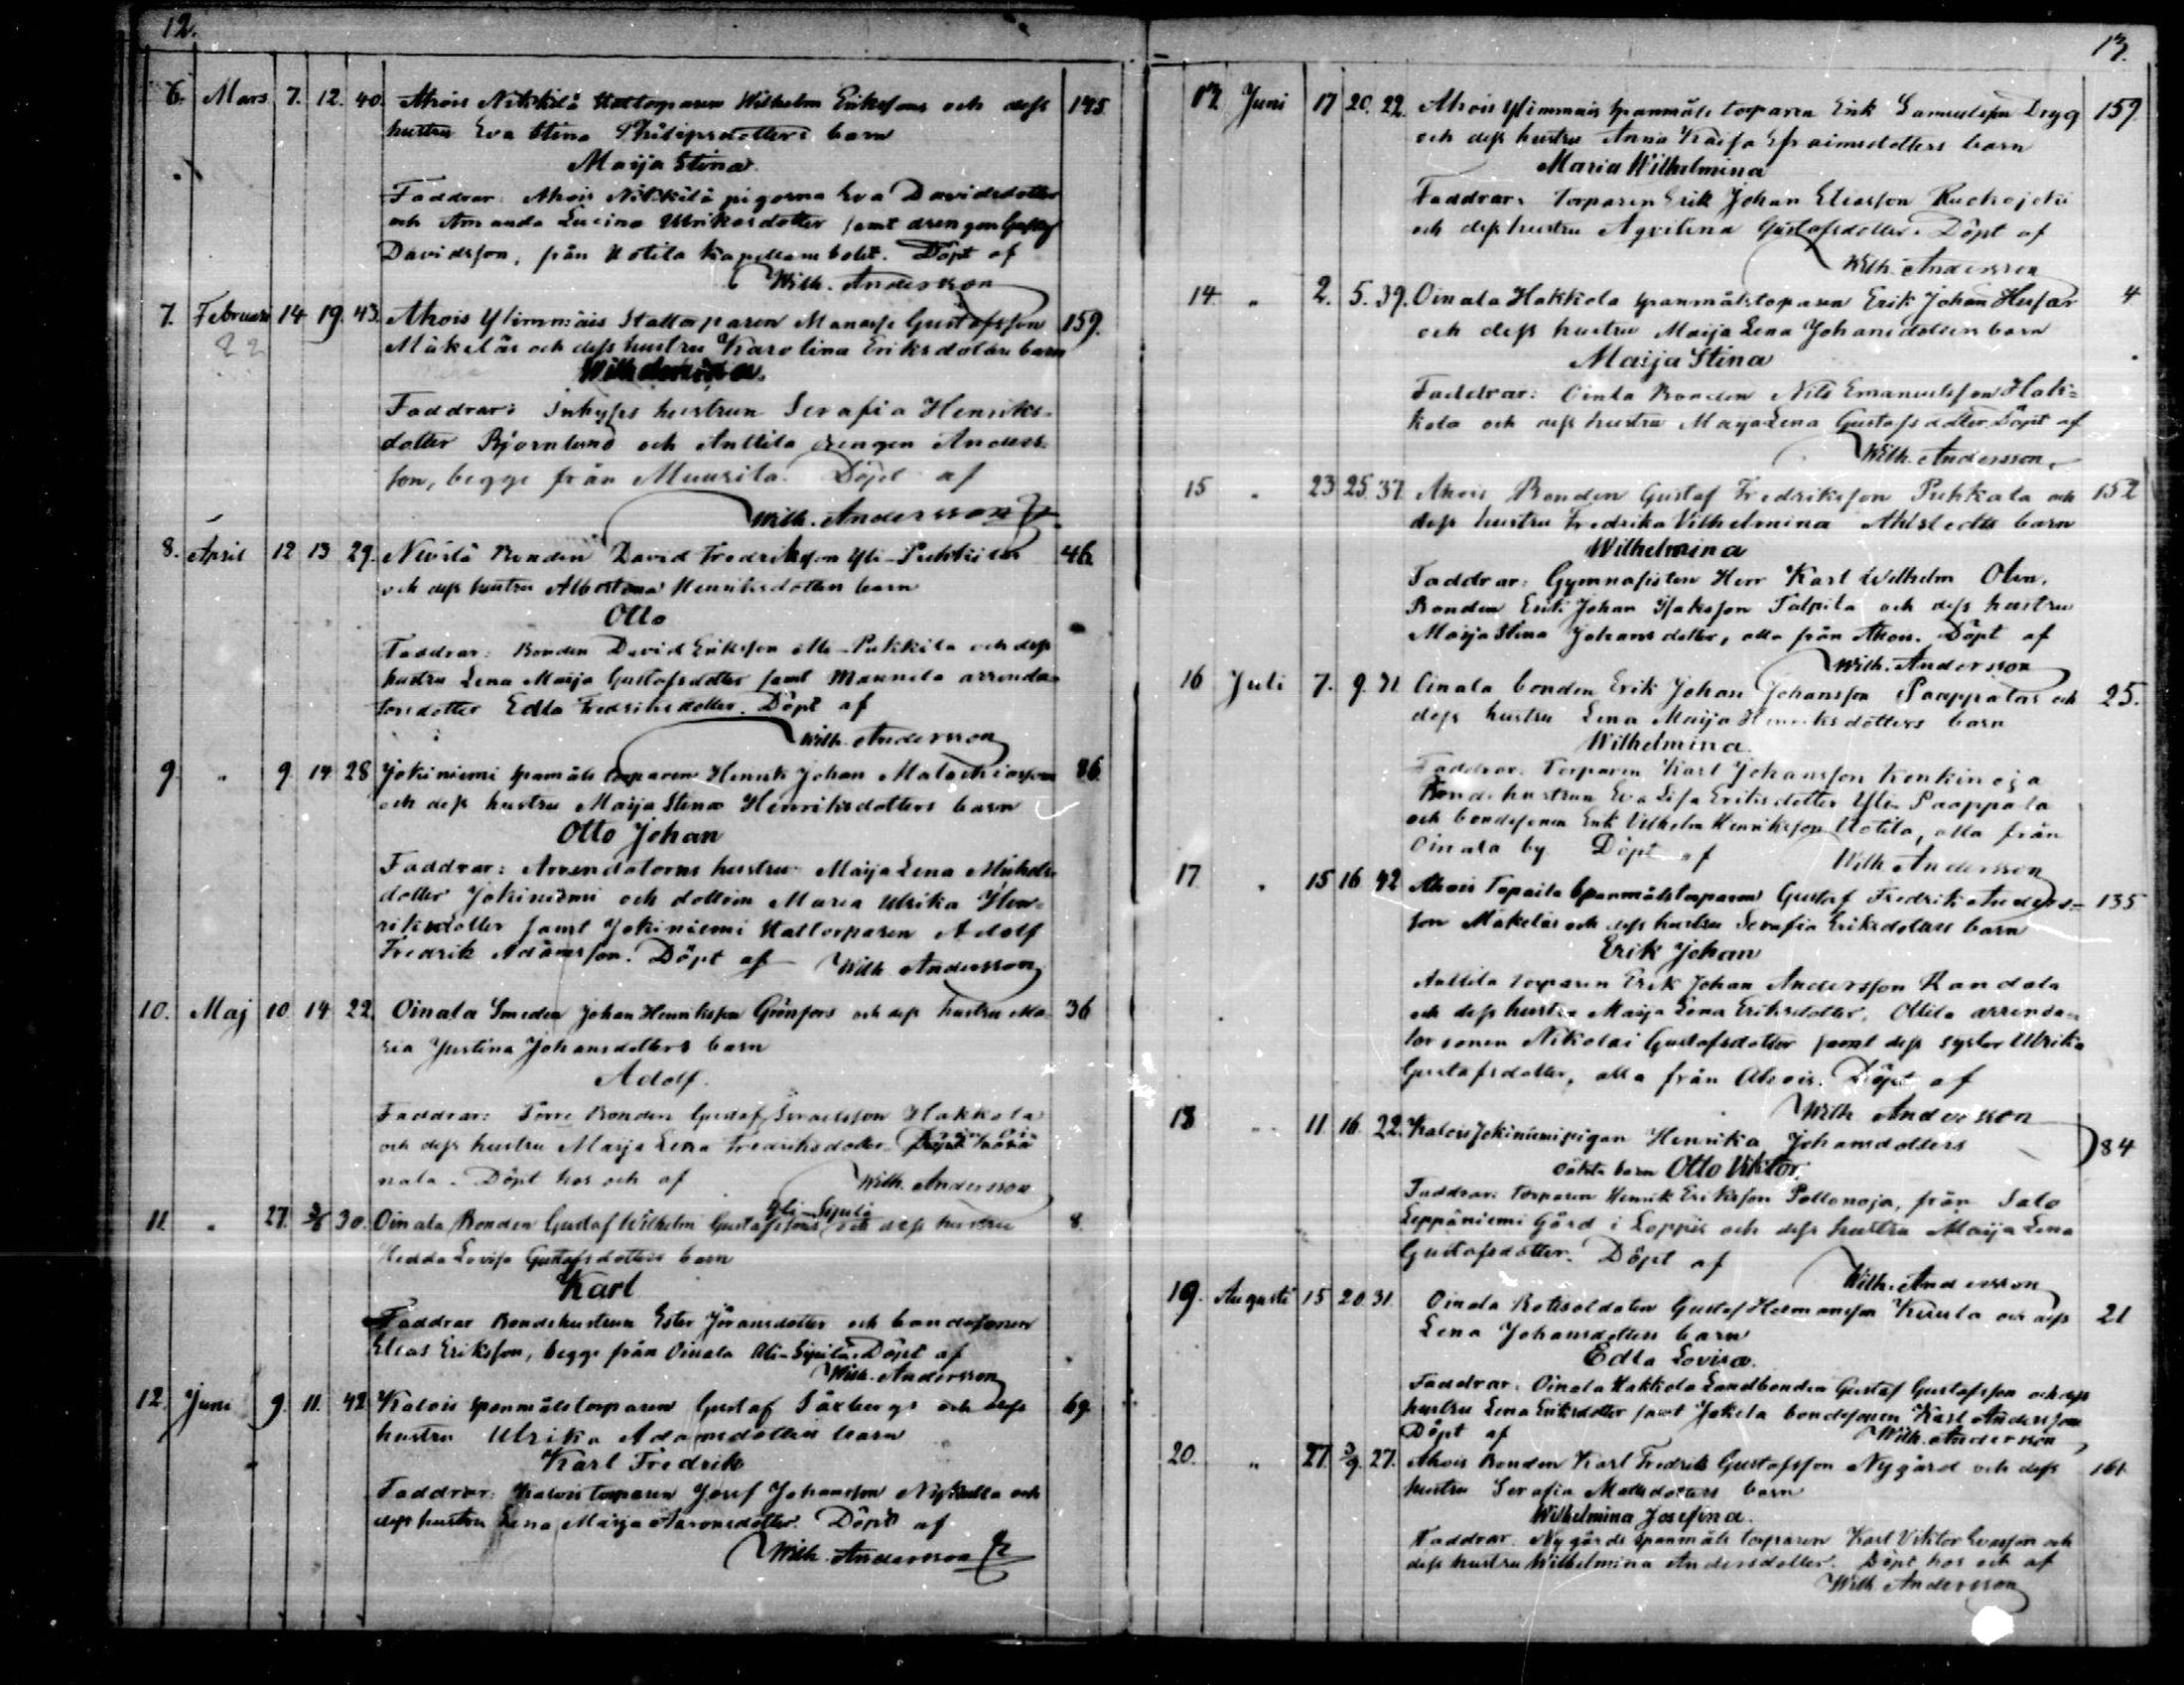 12.
6. Mars 7. 12. 40. Ahois Nikkilä Stattorparen Wilhelm Erikssons och dess 145.
hustru Eva Stina Philipsdotters barn
Maija Stina
Faddrar: Ahois Nikkilä pigorna Eva Davidsdotter
och Amanda Lucina Ulrikasdotter samt drengen Gustaf
Davidsson, från Uotila Kapellansbolet. Döpt af
Wilh. Andersson
7. Februari 14 19. 43. Ahois Ylimmäis Stattorparen Manasse Gustafsson 159.
22
Mäkeläs och dess hustru Karolina Eriksdotters barn
Wilhelmina.
Faddrar: Inhyses hustrun Serafia Henriks-
dotter Björnlund och Anttila drengen Anders-
son, begge från Muurila. Döpt af
Wilh. Andersson
8. April 12 13 29. Bonden David Fredriksson Yli- 46.
och dess hustru Albertina Henriksdotters barn
Otto
Faddrar: Bonden David Eriksson Ali-Pukkila och dess
hustru Lena Maija Gustafsdotter samt Mannila arrenda-
torsdotter Edla Fredriksdotter. Döpt af
Wilh. Andersson
9 " 9. 14 28 Jokiniemi spanmåls torparen Henrik Johan Malachiasson 86.
och dess hustru Maija Stina Henriksdotters barn
Otto Johan
Faddrar: Arrendatorns hustru Maija Lena Michels-
dotter Jokiniemi och dottern Maria Ulrika Hen-
riksdotter samt Jokiniemi Stattorparen Adolf
Fredrik Adamsson. Döpt af Wilh. Andersson
10. Maj 10 14 22. Oinala Smeden Johan Henriksson Grönfors och dess hustru Ma- 36
ria Justina Johansdotters barn
Adolf.
Faddrar: Förre Bonden Gustaf Israelsson Hakkola
och dess hustru Maija Lena Fredriksdotter Oi-
nala. Döpt hos och af Wilh. Andersson
11. " 27. 3/6 30. Oinala Bonden Gustaf Wilhelm Gustafssons Yli-Sipilä och dess hustru 8.
Hedda Lovisa Gustafsdotters barn
Karl
Faddrar Bondehustrun Ester Göransdotter och bondesonen
Elias Eriksson, begge från Oinala Ali-Sipilä. Döpt af
Wilh. Andersson
12. Juni 9. 11. 42 Kalois spanmålstorparen Gustaf Säxbergs och dess 69.
hustru Ulrika Adamsdotters barn
Karl Fredrik
Faddrar: Kalois torparen Josef Johansson och
dess hustru Lena Maija Aaronsdotter. Döpt af
Wilh. Andersson
13.
13 Juni 17 20. 22. Ahois Ylimmäis spanmåls torparen Erik Samuelsson Dryg 159.
och dess hustru Anna Kaisa Efraimsdotters barn
Maria Wilhelmina
Faddrar: Torparen Erik Johan Eliasson Ruohojoki
och dess hustru Aqvilina Gustafsdotter. Döpt af
Wilh. Andersson
14 " 2. 5. 39. Oinala Hakkola spanmålstorparen Erik Johan Husar 4
och dess hustru Maija Lena Johansdotters barn
Maija Stina
Faddrar: Oinla Bonden Nils Emanuelsson Hak-
kola och dess hustru Maija Lena Gustafsdotter. Döpt af
Wilh. Andersson
15 " 23 25. 37. Ahois Bonden Gustaf Fredriksson Puhkala och 152
dess hustru Fredrika Vilhelmina Ahlstedts barn
Wilhelmina
Faddrar: Gymnasisten Herr Karl Wilhelm
Bonden Erik Johan Isaksson Talpila och dess hustru
Maija Stina Johansdotter, alla från Ahois. Döpt af
Wilh. Andersson
16 Juli 7. 9. 31 Oinala bonden Erik Johan Johansson Paappalas och 25.
dess hustru Lena Maija Henriksdotters barn
Wilhelmina.
Faddrar: Torparen Karl Johansson Konkinoja
Bonde hustrun Eva Lisa Eriksdotter Yli-Paappala
och bondesonen Erik Vilhelm Henriksson Uotila, alla från
Oinala by Döpt af Wilh Andersson
17 " 15 16 42 Ahois Topaila spanmålstorparen Gustaf Fredrik Anders- 135
son Mäkeläs och dess hustru Serafia Eriksdotters barn
Erik Johan
Anttila torparen Erik Johan Andersson Randala
och dess hustru Maija Lena Eriksdotter, Ottila arrenda-
tor sonen Nikolai Gustafsdotter samt dess syster Ulrika
Gustafsdotter, alla från Ahois. Döpt af
Wilh Andersson
18 " 11. 16. 22. Kalois Jokiniemi pigan Henrika Johansdotters 84
oäkta barn Otto Viktor.
Faddrar: torparen Henrik Eriksson Pollonoja, från Salo
Leppäniemi Gård i Loppis och dess hustru Maija Lena
Gustafsdotter. Döpt af
Wilh. Andersson
19. Augusti 15 20 31. Oinala Rotesoldaten Gustaf Hermansson Kuula och dess 21
Lena Johansdotters barn
Edla Lovisa.
Faddrar: Oinala Hakkola Landbonden Gustaf Gustafsson och dess
hustru Lena Eriksdotter samt Jokela bondesonen Karl Andersson
Döpt af Wilh. Andersson
20. " 27. 3/9. 27. Ahois Bonden Karl Fredrik Gustafsson Nygård och dess 161.
hustru Serafia Mattsdotters barn
Wilhelmina Josefina.
Faddrar. Nygårds spanmåls torparen Karl Viktor Evasson och
dess hustru Wilhelmina Andersdotter. Döpt hos och af
Wilh. Andersson